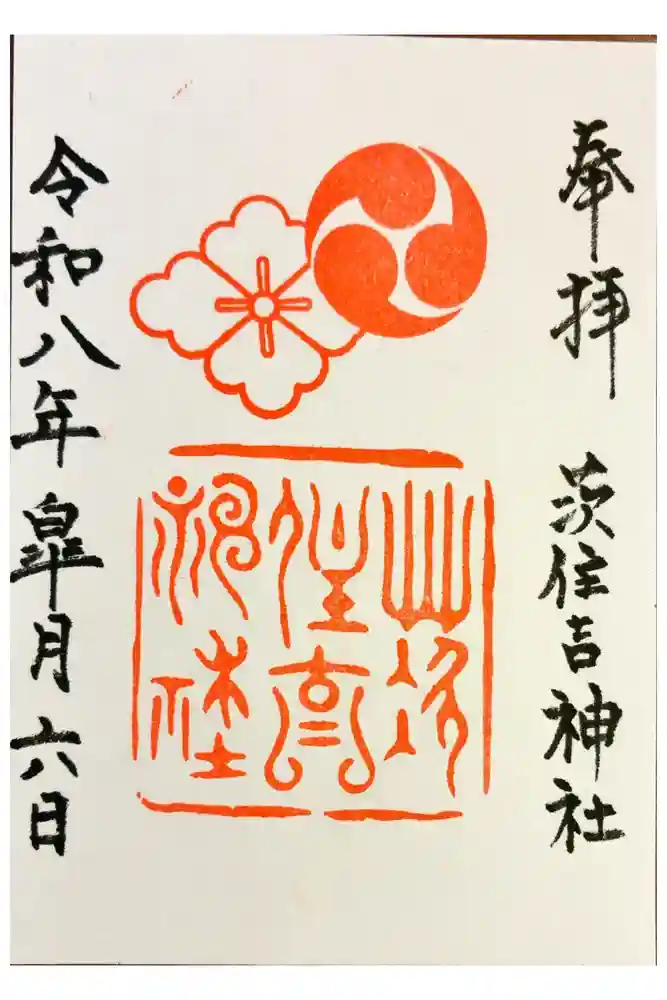 奉拝 茨住吉神社
茨
住吉
神社
令和八年皐月六日